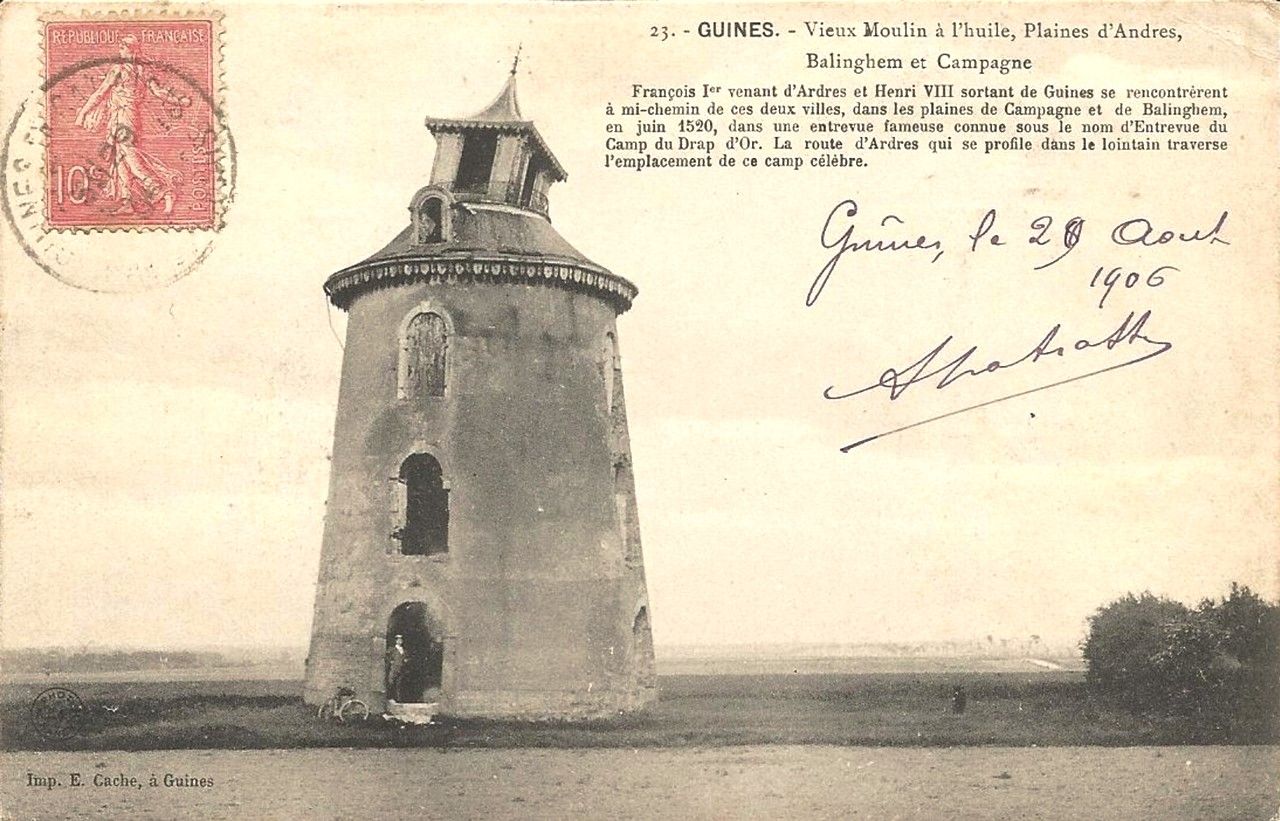 REPUBLIQUE FRANÇAISE
10
POSTES
23. - GUINES. - Vieux Moulin à l'huile, Plaines d'Andres,
Balinghem et Campagne
François Ier venant d'Ardres et Henri VIII sortant de Guines se rencontrèrent
à mi-chemin de ces deux villes, dans les plaines de Campagne et de Balinghem,
en juin 1520, dans une entrevue fameuse connue sous le nom d'Entrevue du
Camp du Drap d'Or. La route d'Ardres qui se profile dans le lointain traverse
l'emplacement de ce camp célèbre.
Guînes, le 28 Aout
1906
Imp. E. Cache, à Guines